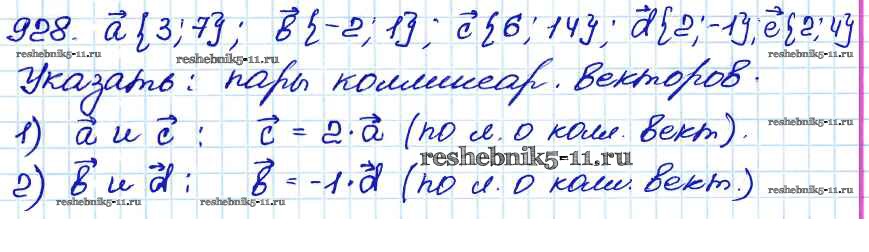 928. a⃗ {3; 7}; b⃗ {-2; 1}; c⃗ {6; 14}; d⃗ {2; -1}; e⃗ {2; 4}
reshebnik5-11.ru reshebnik5-11.ru reshebnik5-11.ru
Указать: пары коллинеар. векторов.
1) a⃗ и c⃗ : c⃗ = 2·a⃗ (по л. о колл. вект).
reshebnik5-11.ru reshebnik5-11.ru
reshebnik5-11.ru
2) b⃗ и d⃗ : b⃗ = -1·d⃗ (по л. о колл. вект.)
reshebnik5-11.ru reshebnik5-11.ru reshebnik5-11.ru